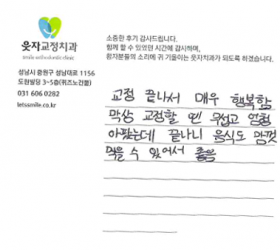 웃자교정치과
smile orthodontic clinic
성남시 중원구 성남대로 1156
도환빌딩 3~5층(위즈노간물)
031 606 0282
letssmile.co.kr
소중한 후기 감사드립니다.
함께 할 수 있었던 시간에 감사하며,
환자분들의 소리에 귀 기울이는 웃자치과가 되도록 하겠습니다.
교정 끝나서 매우 행복함
막상 교정할 땐 무섭고 엄청
아팠는데 끝나니 음식도 맘껏
먹을 수 있어서 좋음